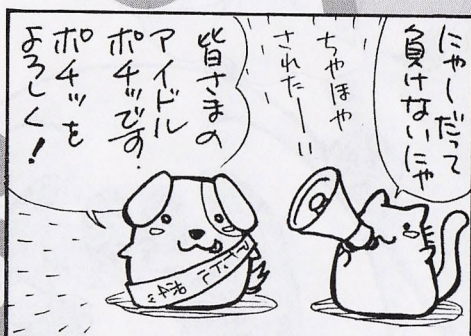 にゃーだって
負けないにゃ
ちやほや
されたーい
皆さまの
アイドル
ポチッです。
ポチッを
よろしく!